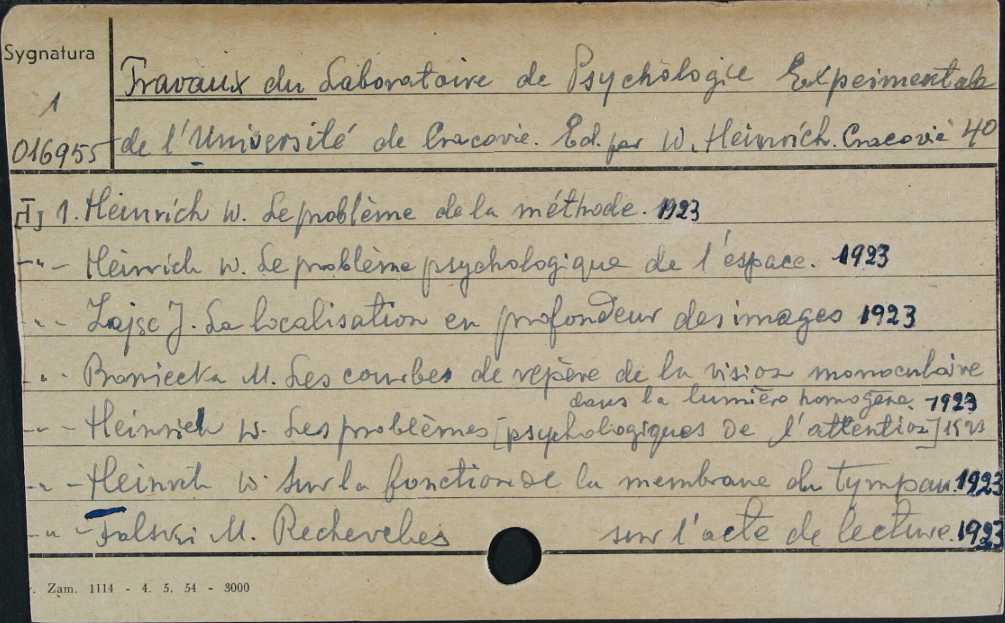 Sygnatura
1
016955
Travaux du Laboratoire de Psychologie Expeimentale
de l'Université de Cracovie. Ed. par W. Heinrich. Cracovie 40
[I] 1. Heinrich W. Le problème de la méthode. 1923
-"- Heinrich W. Le problème psychologique de l'éspace. 1923
-"- Zajac J. La localisation en profondeur des images 1923
-"- Braniecka M. Les courbes de repère de la vision monoculaire
dans la lumièro homogène. 1923
-"- Heinrich W. Les problèmes [psychologiques de l'attention] 1923
-"- Heinrich W. Sur la fonction de la membrane du tympan. 1923
-"- Falski M. Recherches sur l'acte de lecture. 1923
. Zam. 1114 - 4. 5. 54 - 3000